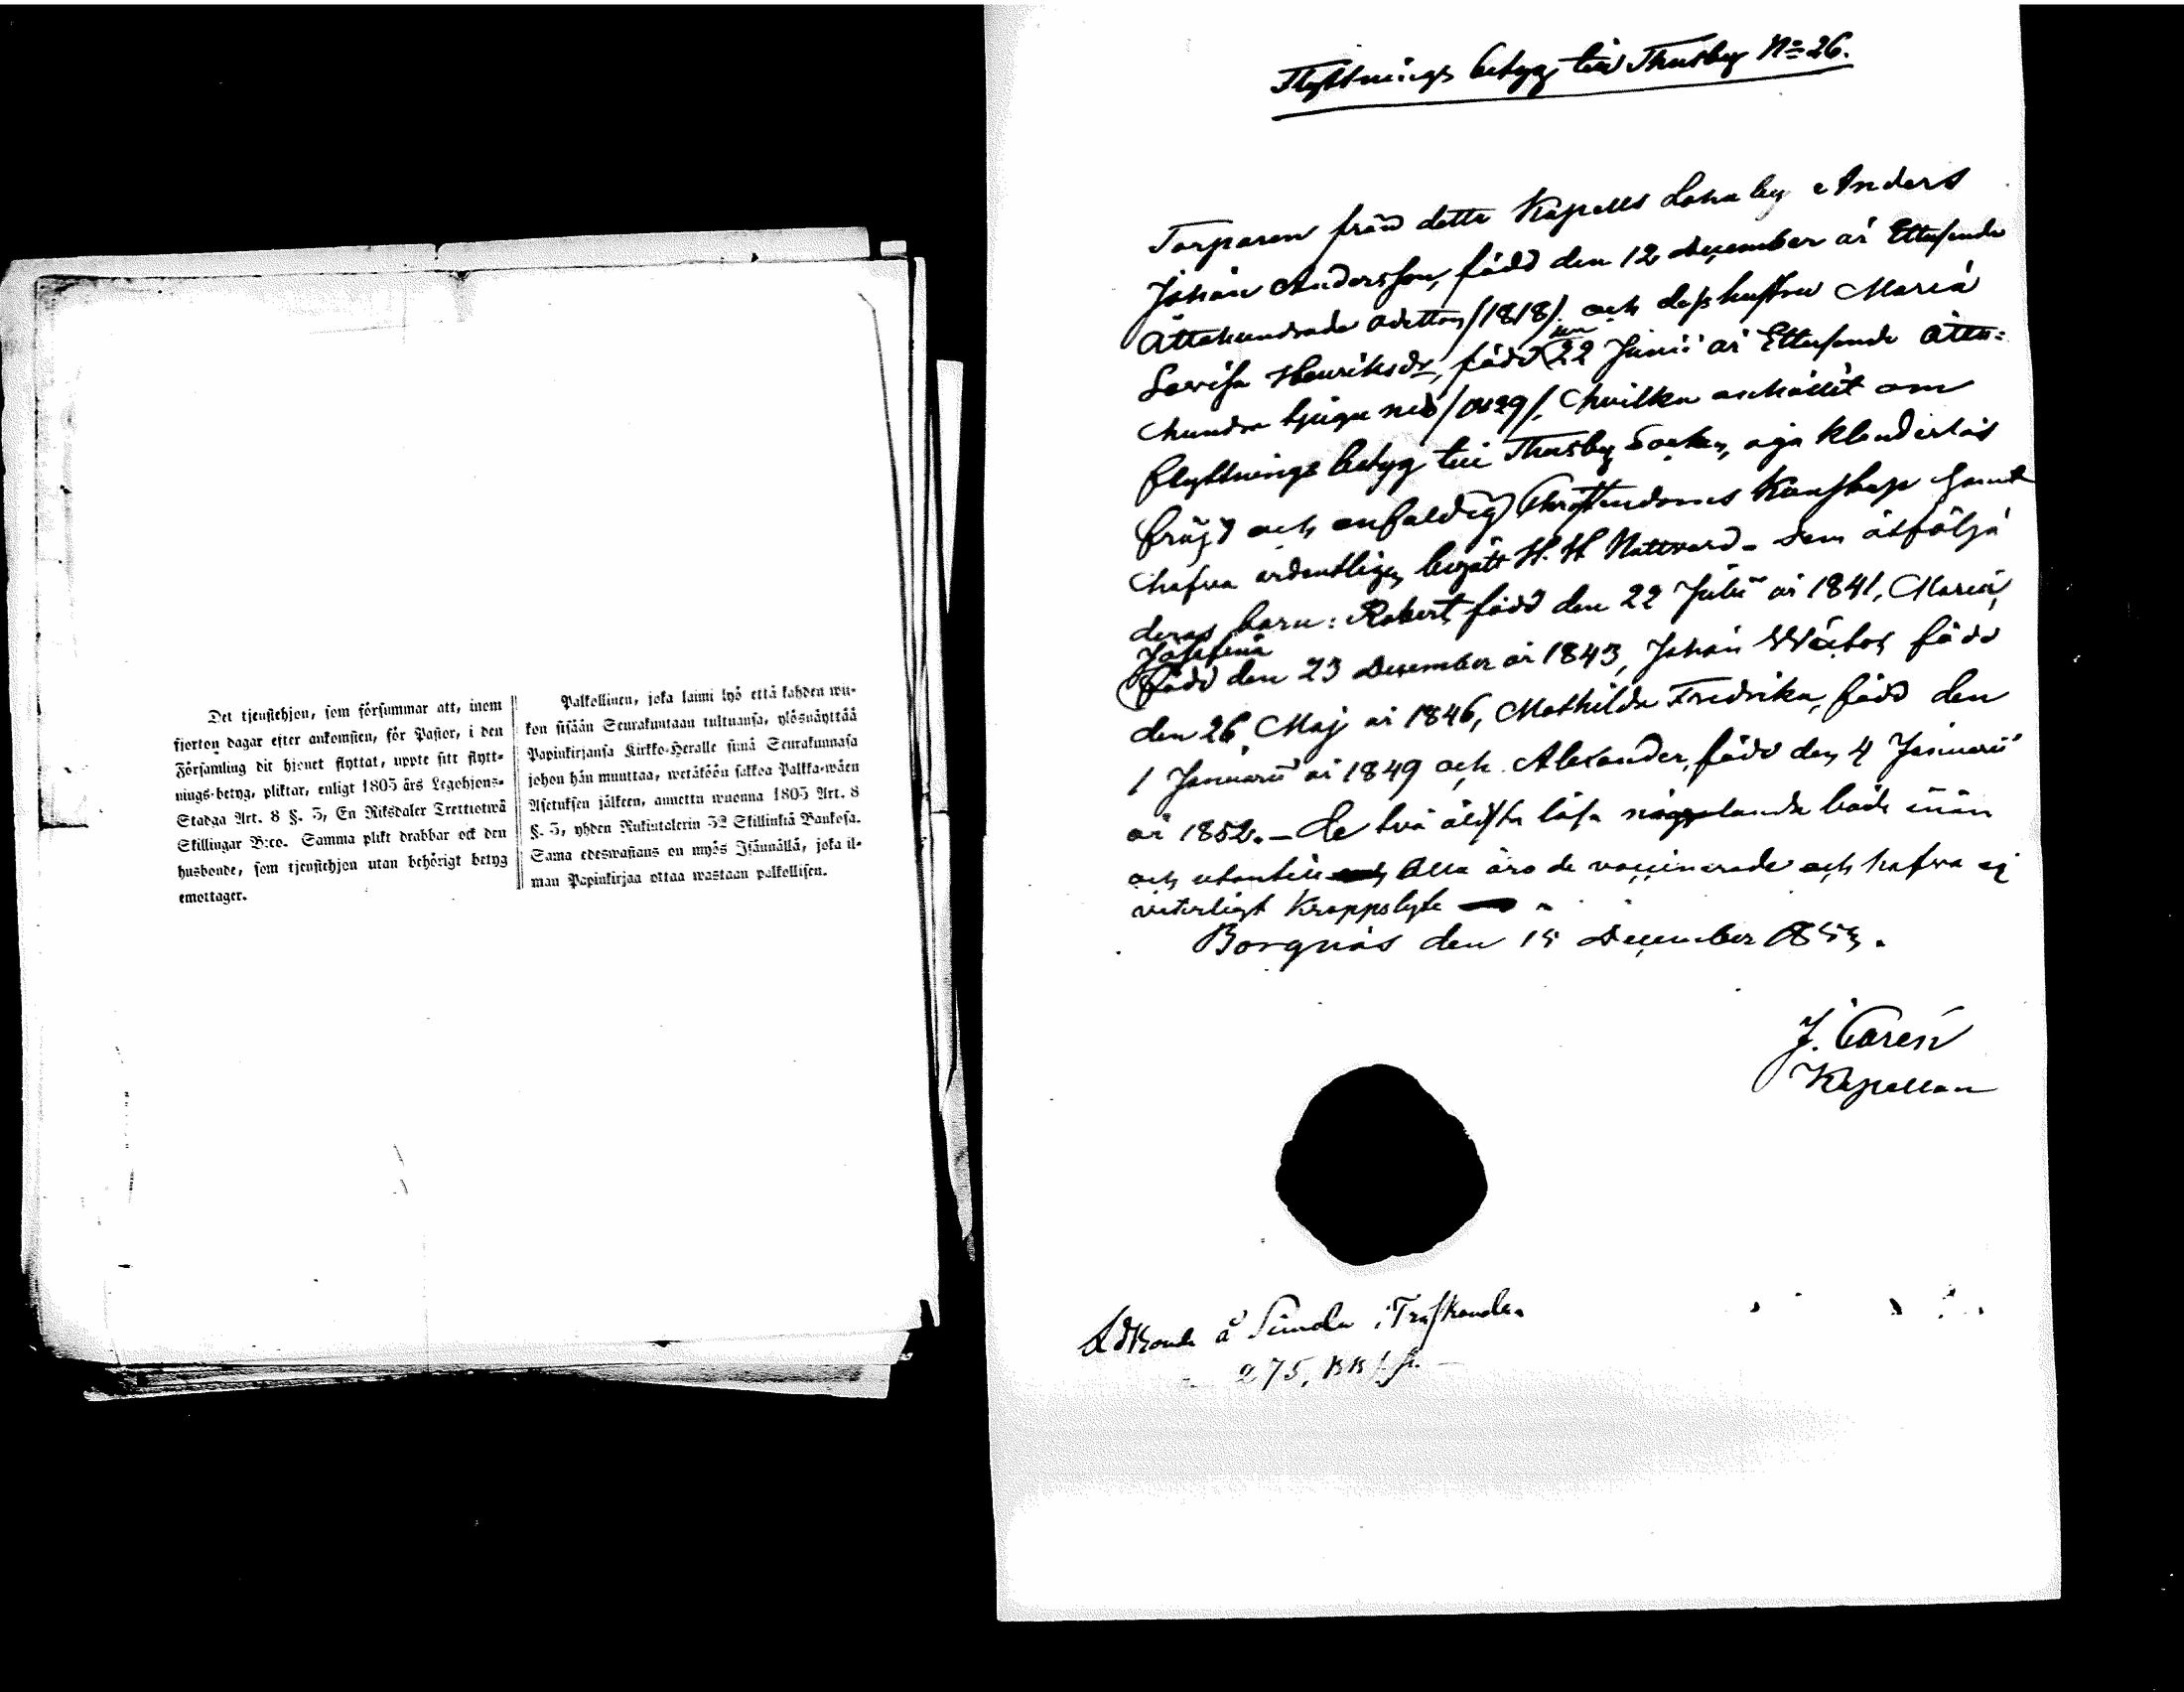 Det tjenstehjon, som försummar att, inom
fjorton dagar efter ankomsten, för Pastor, i den
Församling dit hjonet flyttat, uppte sitt flytt-
nings-betyg, pliktar, enligt 1805 års Legohjons-
Stadga Art. 8 §. 3, En Riksdaler Trettiotwå
Skillingar B:co. Samma plikt drabbar ock den
husbonde, som tjenstehjon utan behörigt betyg
emottager.
Palkollinen, joka laimi lyö että kahden wii-
kon sisään Seurakuntaan tultuansa, ylösnäyttää
Papinkirjansa Kirkko-Herralle siinä Seurakunnasa
johon hän muuttaa, wetäköön sakkoa Palkka-wäen
Asetuksen jälkeen, annettu wuonna 1805 Art. 8
§. 3, yhden Riikintalerin 32 Skillinkiä Bankosa.
Sama edeswastaus on myös Isännällä, joka il-
man Papinkirjaa ottaa wastaan palkollisen.
Flyttnings betyg till Thusby No 26.
Torparen från detta Kapells by Anders
Johan Andersson, född den 12 December år Ettusende
Åttahundrade aderton /1818/. och dess hustru Maria
Lovisa Henriksdr, född den 22 Junii år Ettusende åtta-
hundra tjugu nio /1829/, hvilka anhållit om
flyttnings betyg till Thusby Socken, äga klanderlös
fräjd och enfaldig Christendoms Kunskap samt
hafva ordentligen begått H. H. Nattvard - Dem åtfölja
deras barn: Robert, född den 22 Julii år 1841, Maria
Josefina
född den 23 December år 1843, Johan född
den 26 Maj år 1846, Mathilda Fredrika, född den
1 Januarii år 1849 och Alexander, född den 4 Januarii
år 1852. - De två äldsta läsa både innan
och utantill Alla äro de vaccinerade och hafva ej
veterligt Kroppslyte
Borgnäs den 15 December 1853.
J. Carén
Kapellan
å Simola, Träskända
275,